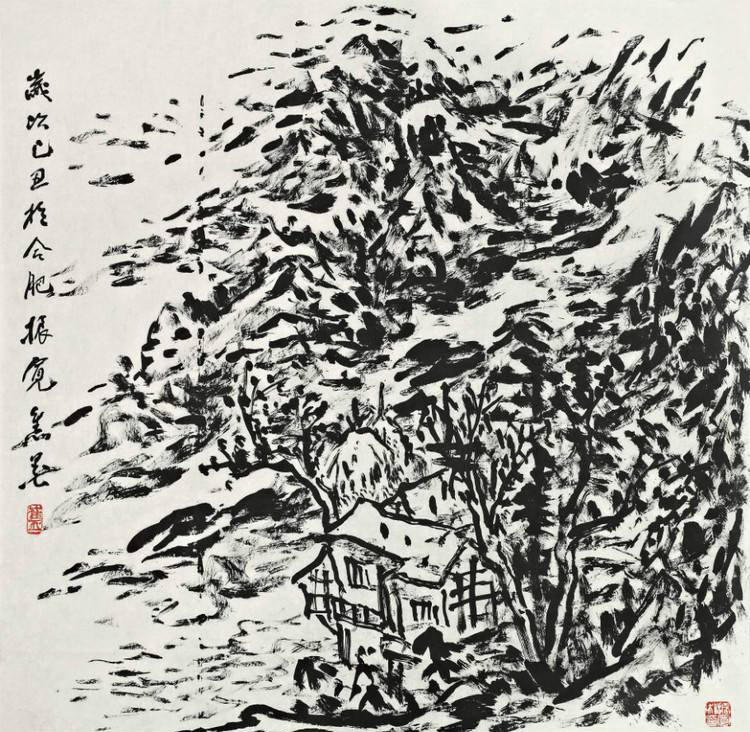 歲次己丑於合肥振寬焦墨